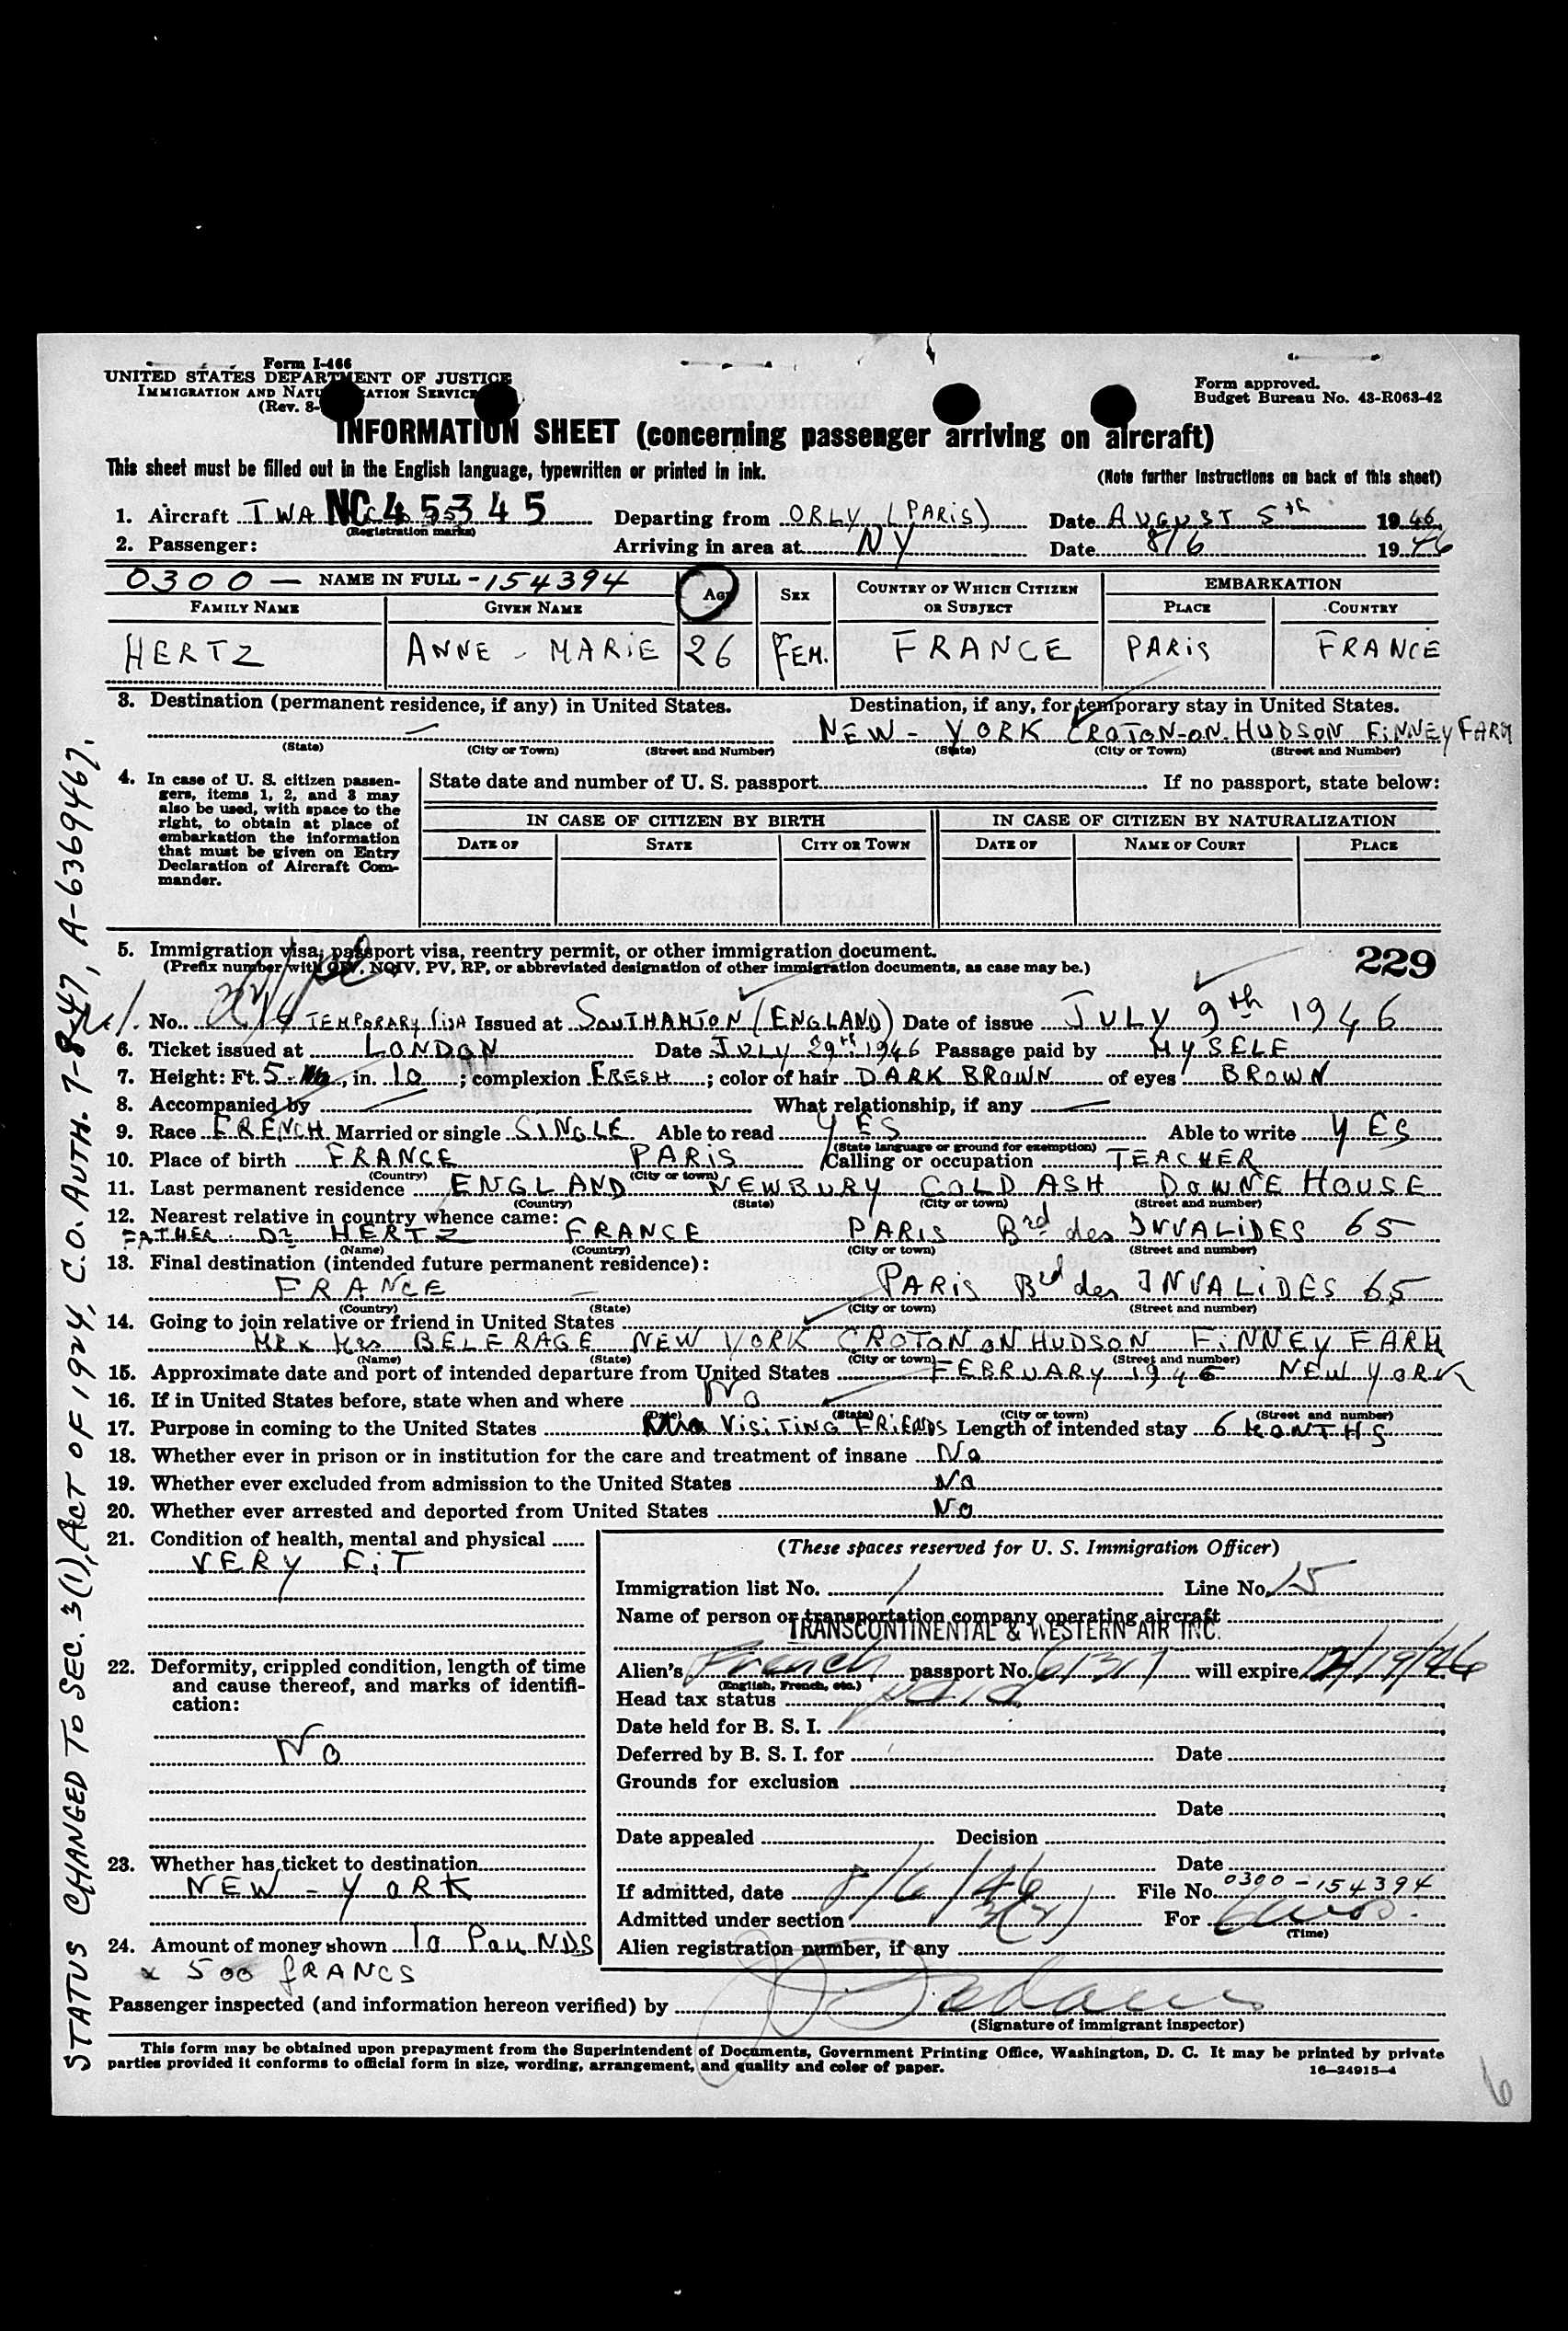 Form I-466
UNITED STATES DEPARTMENT OF JUSTICE
IMMIGRATION AND NATU ATION SERVICE
(Rev. 8-
Form approved.
Budget Bureau No. 43-R063-42
INFORMATION SHEET (concerning passenger arriving on aircraft)
This sheet must be filled out in the English language, typewritten or printed in ink.
(Note further instructions on back of this sheet)
1. Aircraft TWA NC 45345 Departing from ORLY (PARIS) Date AUGUST 5th 1946
(Registration marks)
2. Passenger: Arriving in area at NY Date 8/6 1946
0300 — NAME IN FULL - 154394 AGE SEX COUNTRY OF WHICH CITIZEN OR SUBJECT EMBARKATION
FAMILY NAME GIVEN NAME PLACE COUNTRY
HERTZ ANNE - MARIE 26 FEM. FRANCE PARIS FRANCE
3. Destination (permanent residence, if any) in United States. Destination, if any, for temporary stay in United States.
— NEW - YORK CROTON-ON-HUDSON FINNEY FARM
(State) (City or Town) (Street and Number) (State) (City or Town) (Street and Number)
4. In case of U. S. citizen passengers, items 1, 2, and 3 may also be used, with space to the right, to obtain at place of embarkation the information that must be given on Entry Declaration of Aircraft Commander.
State date and number of U. S. passport If no passport, state below:
IN CASE OF CITIZEN BY BIRTH IN CASE OF CITIZEN BY NATURALIZATION
DATE OF STATE CITY OR TOWN DATE OF NAME OF COURT PLACE
5. Immigration visa, passport visa, reentry permit, or other immigration document.
(Prefix number with QIV, NQIV, PV, RP, or abbreviated designation of other immigration documents, as case may be.)
229
No. TEMPORARY VISA Issued at SOUTHAMTON (ENGLAND) Date of issue JULY 9th 1946
6. Ticket issued at LONDON Date JULY 29th 1946 Passage paid by MYSELF
7. Height: Ft. 5, in. 10; complexion FRESH; color of hair DARK BROWN of eyes BROWN
8. Accompanied by — What relationship, if any —
9. Race FRENCH Married or single SINGLE Able to read YES Able to write YES
(State language or ground for exemption)
10. Place of birth FRANCE PARIS Calling or occupation TEACHER
(Country) (City or town)
11. Last permanent residence ENGLAND NEWBURY COLD ASH DOWNE HOUSE
(Country) (State) (City or town) (Street and number)
12. Nearest relative in country whence came:
FATHER. Dr HERTZ FRANCE PARIS Brd des INVALIDES 65
(Name) (Country) (City or town) (Street and number)
13. Final destination (intended future permanent residence):
FRANCE — PARIS Brd des INVALIDES 65
(Country) (State) (City or town) (Street and number)
14. Going to join relative or friend in United States
MR & Mrs BELERAGE NEW YORK CROTON ON HUDSON FINNEY FARM
(Name) (State) (City or town) (Street and number)
15. Approximate date and port of intended departure from United States FEBRUARY 1946 NEW YORK
16. If in United States before, state when and where No
(Date) (State) (City or town) (Street and number)
17. Purpose in coming to the United States VISITING FRIENDS Length of intended stay 6 MONTHS
18. Whether ever in prison or in institution for the care and treatment of insane No
19. Whether ever excluded from admission to the United States No
20. Whether ever arrested and deported from United States No
21. Condition of health, mental and physical
VERY FIT
22. Deformity, crippled condition, length of time and cause thereof, and marks of identification:
No
23. Whether has ticket to destination
NEW - YORK
24. Amount of money shown 10 POUNDS
& 500 FRANCS
(These spaces reserved for U. S. Immigration Officer)
Immigration list No. 1 Line No. 15
Name of person or transportation company operating aircraft
TRANSCONTINENTAL & WESTERN AIR INC.
Alien's French passport No. 61317 will expire 12/19/46
(English, French, etc.)
Head tax status paid
Date held for B. S. I.
Deferred by B. S. I. for Date
Grounds for exclusion
Date
Date appealed Decision
Date
If admitted, date 8/6/46 File No. 0300-154394
Admitted under section 3(2) For 6 mos.
(Time)
Alien registration number, if any
Passenger inspected (and information hereon verified) by
(Signature of immigrant inspector)
This form may be obtained upon prepayment from the Superintendent of Documents, Government Printing Office, Washington, D. C. It may be printed by private
parties provided it conforms to official form in size, wording, arrangement, and quality and color of paper.
16—24915-4
6
STATUS CHANGED TO SEC. 3(1), ACT OF 1924, C.O. AUTH. 7-8-47, A-6369467.